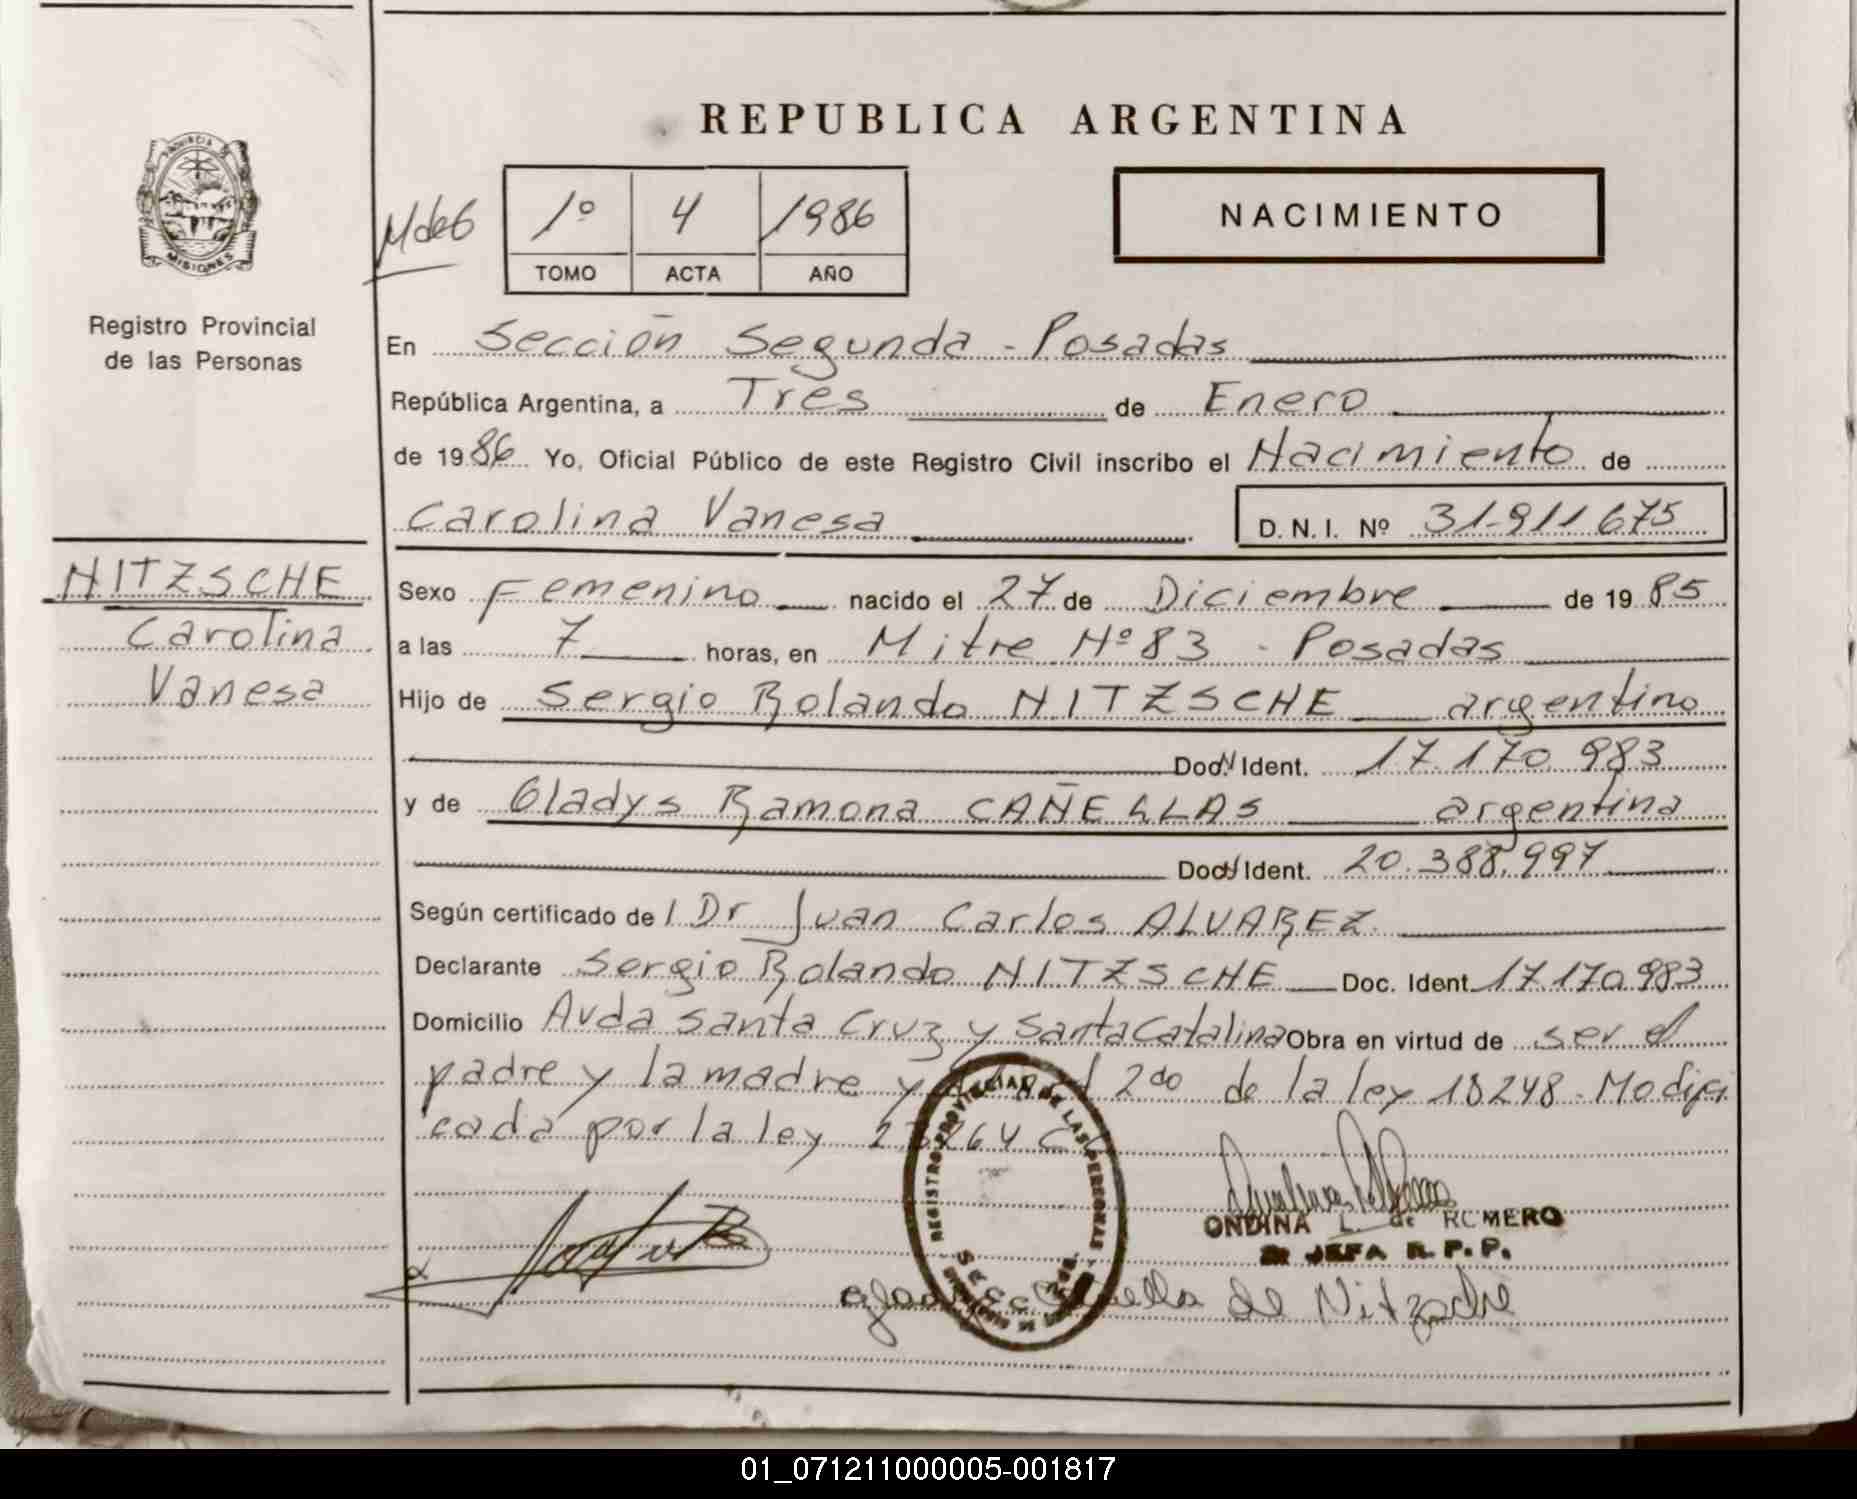 REPUBLICA ARGENTINA
PROVINCIA DE
MISIONES
Registro Provincial
de las Personas
MdeG
1º 4 1986
TOMO ACTA AÑO
NACIMIENTO
En Sección Segunda - Posadas
República Argentina, a Tres de Enero
de 1986 Yo, Oficial Público de este Registro Civil inscribo el Nacimiento de
Carolina Vanesa D. N. I. Nº 31.911.675
NITZSCHE
Carolina
Vanesa
Sexo Femenino nacido el 27 de Diciembre de 1985
a las 7 horas, en Mitre Nº 83 - Posadas
Hijo de Sergio Rolando NITZSCHE argentino
Doc. Ident. 17.170.983
y de Gladys Ramona CAÑELLAS argentina
Doc. Ident. 20.388.997
Según certificado de l Dr Juan Carlos ALVAREZ.
Declarante Sergio Rolando NITZSCHE Doc. Ident. 17.170.983
Domicilio Avda Santa Cruz y Santa Catalina Obra en virtud de ser el
padre y la madre y 2do de la ley 18248. Modifi
cada por la ley 23264
REGISTRO PROVINCIAL DE LAS PERSONAS
ONDINA L. de ROMERO
JEFA R. P. P.
de Nitzsche
01_071211000005-001817